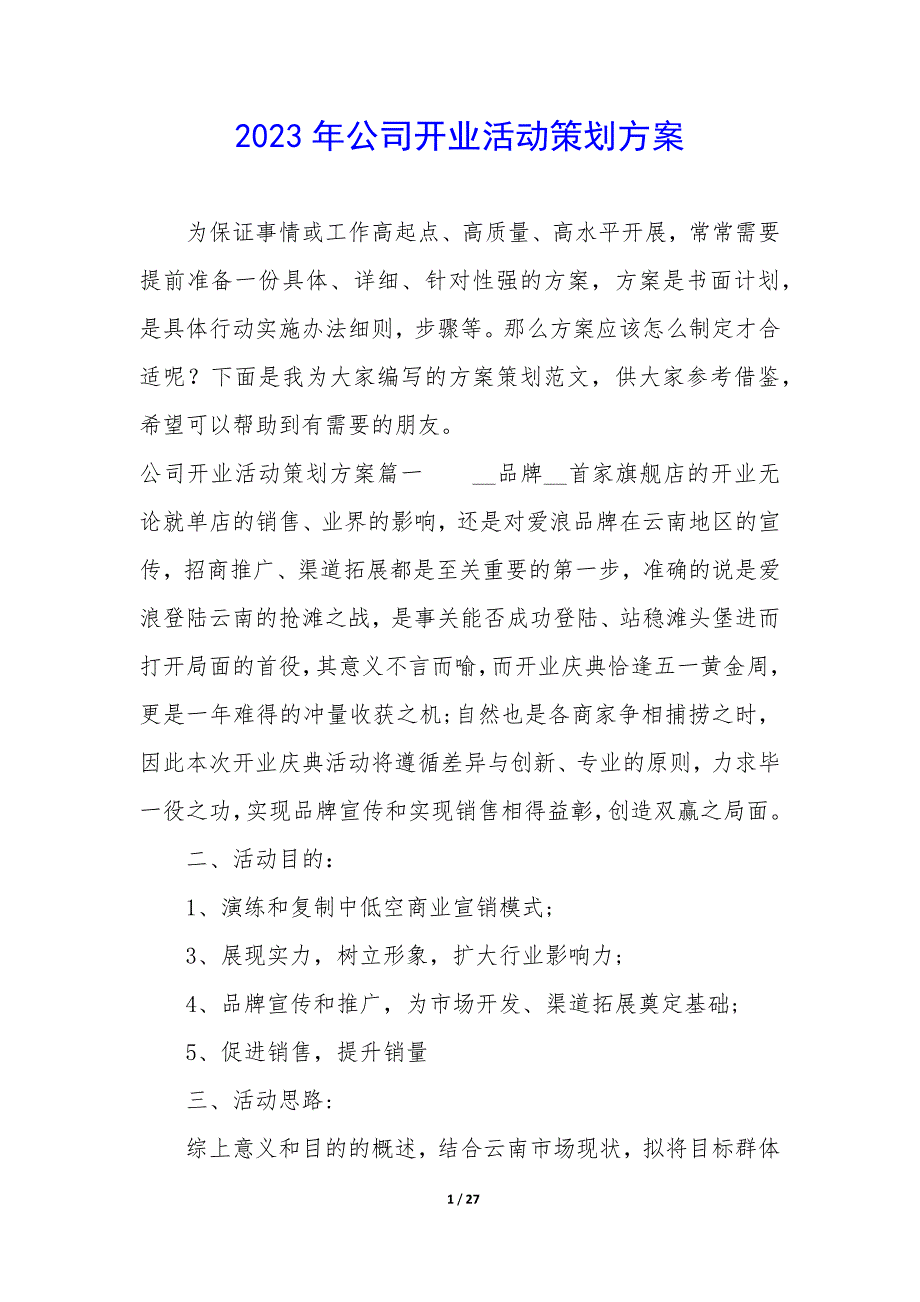 2023 年公司开业活动策划方案
为保证事情或工作高起点、高质量、高水平开展，常常需要
提前准备一份具体、详细、针对性强的方案，方案是书面计划，
是具体行动实施办法细则，步骤等。那么方案应该怎么制定才合
适呢？下面是我为大家编写的方案策划范文，供大家参考借鉴，
希望可以帮助到有需要的朋友。
公司开业活动策划方案篇一 __品牌__首家旗舰店的开业无
论就单店的销售、业界的影响，还是对爱浪品牌在云南地区的宣
传，招商推广、渠道拓展都是至关重要的第一步，准确的说是爱
浪登陆云南的抢滩之战，是事关能否成功登陆、站稳滩头堡进而
打开局面的首役，其意义不言而喻，而开业庆典恰逢五一黄金周，
更是一年难得的冲量收获之机;自然也是各商家争相捕捞之时，
因此本次开业庆典活动将遵循差异与创新、专业的原则，力求毕
一役之功，实现品牌宣传和实现销售相得益彰，创造双赢之局面。
二、活动目的：
1、演练和复制中低空商业宣销模式;
3、展现实力，树立形象，扩大行业影响力;
4、品牌宣传和推广，为市场开发、渠道拓展奠定基础;
5、促进销售，提升销量
三、活动思路:
综上意义和目的的概述，结合云南市场现状，拟将目标群体
1 / 27